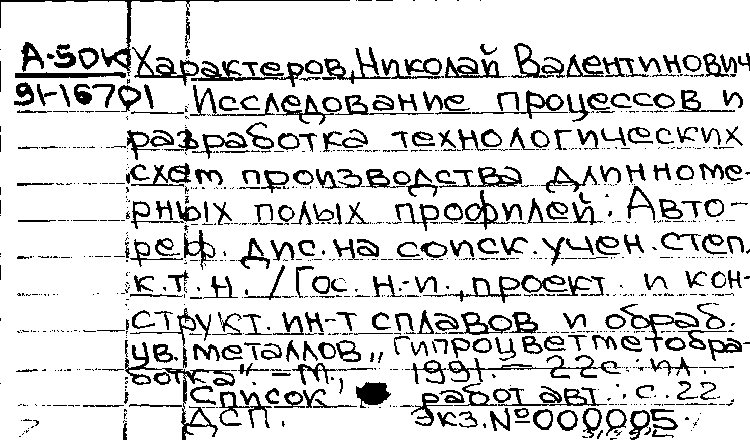 А-50К Характеров, Николай Валентинович
91-16701 Исследование процессов и
разработка технологических
схем производства длинноме-
рных полых профилей: Авто-
реф. дис. на соиск. учен. степ.
к.т.н. / Гос. н.-и., проект. и кон-
структ. ин-т сплавов и обраб.
цв. металлов „Гипроцветметобра-
ботка". – М., 1991. – 22с. : ил.
Список работ авт.: с. 22
ДСП. Экз. № 000005.